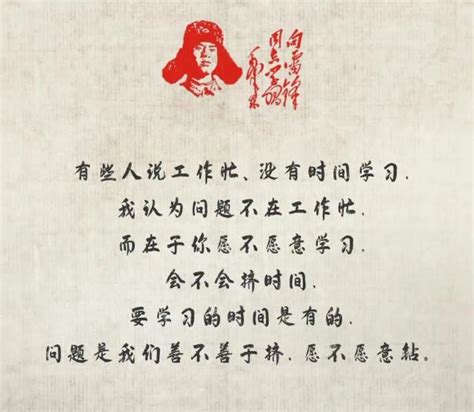 向雷锋
同志学习
毛泽东
有些人说工作忙、没有时间学习.
我认为问题不在工作忙.
而在于你愿不愿意学习.
会不会挤时间.
要学习的时间是有的.
问题是我们善不善于挤.愿不愿意钻。